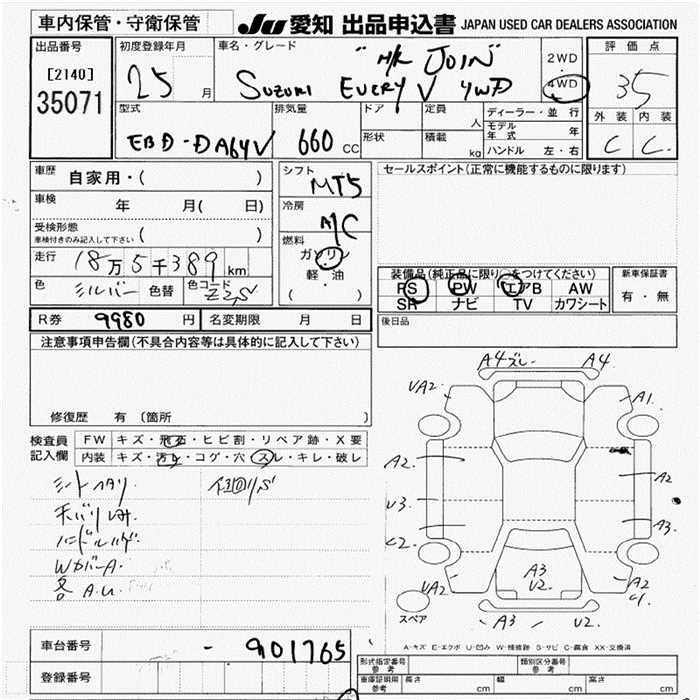 車内保管・守衛保管
JU 愛知 出品申込書 JAPAN USED CAR DEALERS ASSOCIATION
出品番号
[2140]
35071
初度登録年月
25 月
車名・グレード
"H/R JOIN"
SUZUKI EVERY V 4WD
2WD
4WD
評価点
35
外装 内装
C C
型式
EBD-DA64V
排気量
660 CC
ドア
形状
定員 人
積載 kg
ディーラー・並行
モデル年式 年
ハンドル 左・右
車歴 自家用・( )
車検 年 月( 日)
受検形態
車検付きのみ記入して下さい ( )
走行 18万5千389 km
色 シルバー 色替 色コード Z2S
シフト
MT5
冷房
A/C
燃料
ガソリン
軽・油
( )
セールスポイント(正常に機能するものに限ります)
装備品(純正品に限り○をつけてください)
PS PW エアB AW
SR ナビ TV カワシート
新車保証書
有・無
後日品
R券 9980 円 名変期限 月 日
注意事項申告欄(不具合内容等は具体的に記入して下さい)
修復歴 有 (箇所 )
検査員記入欄
FW キズ・飛石・ヒビ割・リペア跡・X要
内装 キズ・汚れ・コゲ・穴・スレ・キレ・破レ
シートヘタリ
天バリ
ハンドルハゲ
WカバーA.
各 A.U
A4ズレ A4
UA2 A1
A2 A2
U3 A3
C2
UA2 A3 U2 A2 C1
スペア A3 U2
A-キズ E-エクボ U-凹み W-補修跡 S-サビ C-腐食 XX-交換済
車台番号 - 901765
登録番号
形式指定番号 参考
類別区分番号 参考
車庫証明用 参考 長さ cm 幅 cm 高さ cm